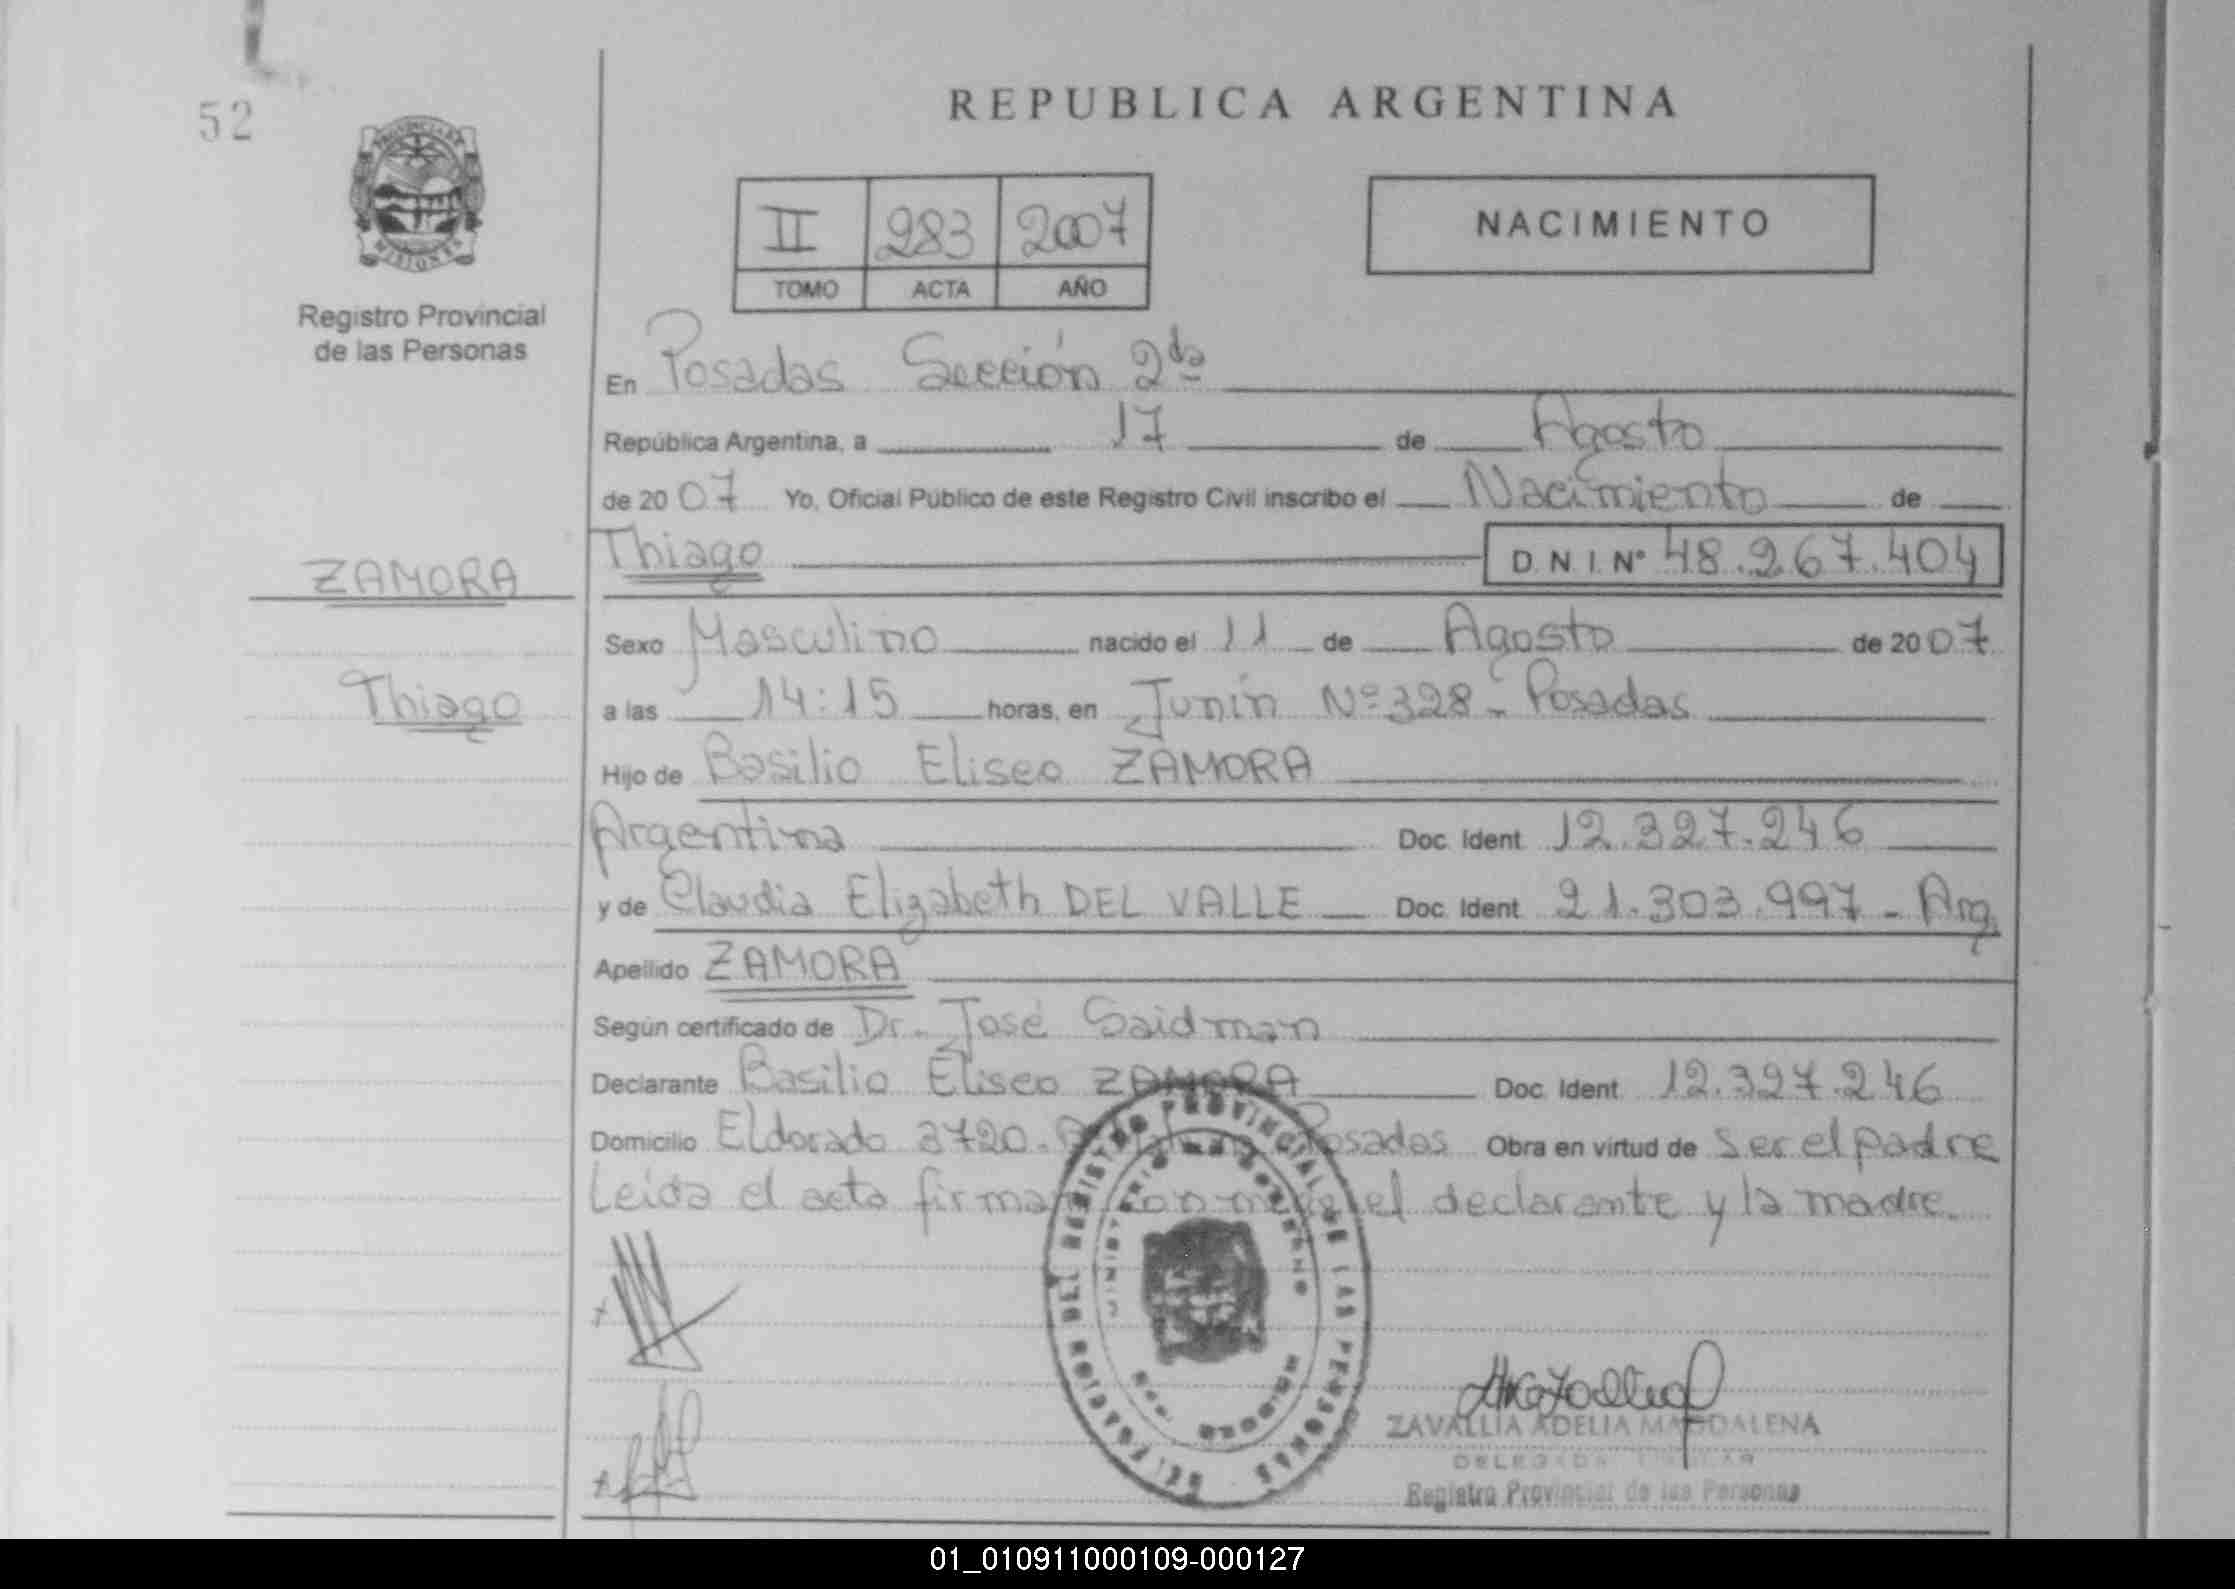 52
PROVINCIA DE
MISIONES
Registro Provincial
de las Personas
REPUBLICA ARGENTINA
II 283 2007
TOMO ACTA AÑO
NACIMIENTO
En Posadas Sección 2da
República Argentina, a 17 de Agosto
de 2007 Yo, Oficial Público de este Registro Civil inscribo el Nacimiento de
ZAMORA
Thiago
Thiago D.N.I. Nº 48.267.404
Sexo Masculino nacido el 11 de Agosto de 2007
a las 14:15 horas, en Junín Nº 328 - Posadas
Hijo de Basilio Eliseo ZAMORA
Argentina Doc. Ident 12.327.246
y de Claudia Elizabeth DEL VALLE Doc. Ident 21.303.997 - Arg.
Apellido ZAMORA
Según certificado de Dr. José Saidman
Declarante Basilio Eliseo ZAMORA Doc. Ident 12.327.246
Domicilio Eldorado 3720. Posadas Obra en virtud de ser el padre
Leída el acta firman con migo el declarante y la madre.
DEL REGISTRO PROVINCIAL DE LAS PERSONAS
MINISTERIO DE GOBIERNO
ZAVALLIA ADELIA MAGDALENA
DELEGADA TITULAR
Registro Provincial de las Personas
01_010911000109-000127